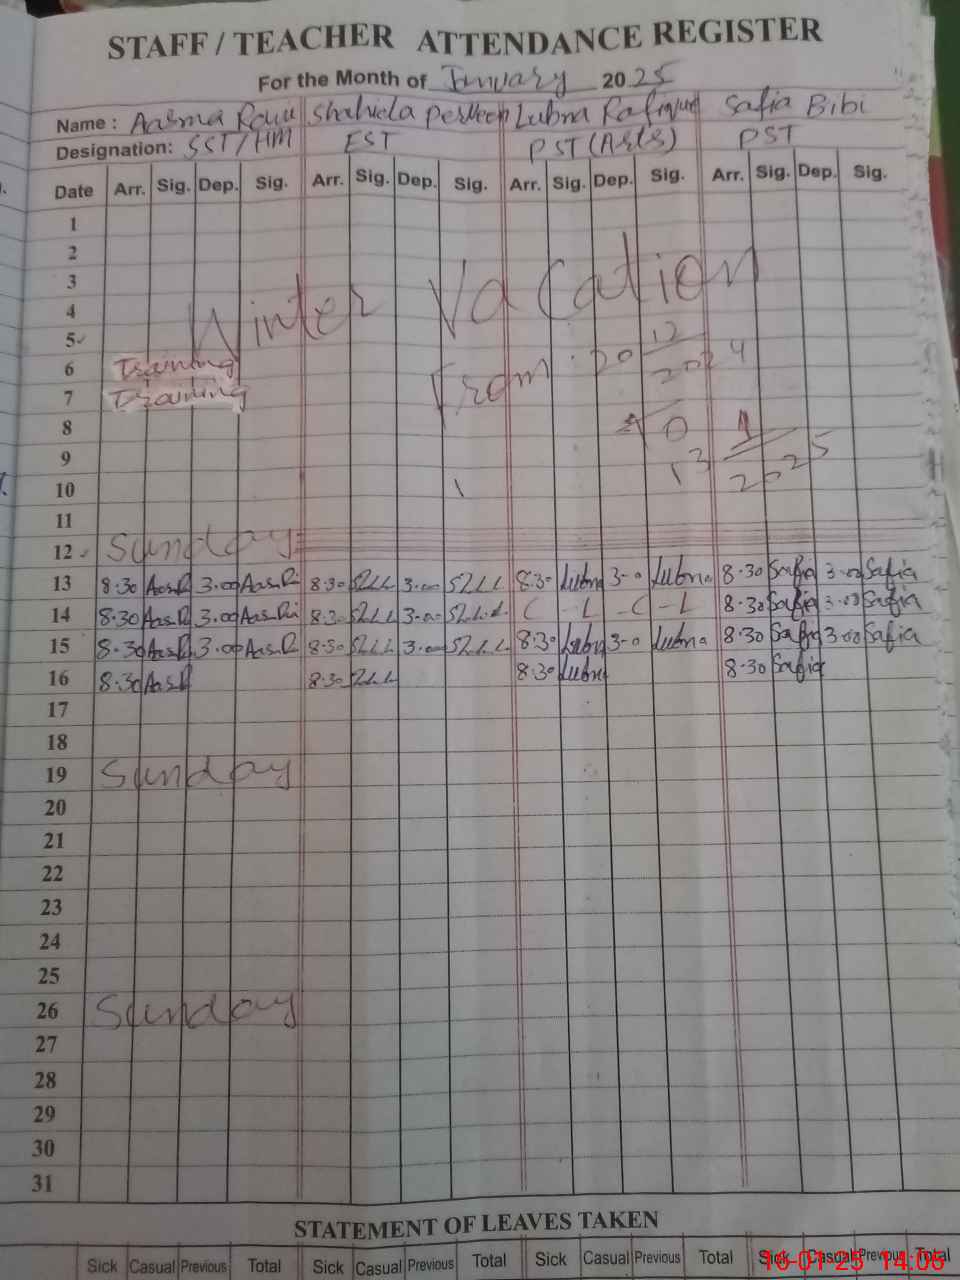 STAFF / TEACHER ATTENDANCE REGISTER
For the Month of January 2025
Name : Aasma Shahida Perveen Lubna Safia Bibi
Designation: SST/HM EST PST (Arts) PST
Date Arr. Sig. Dep. Sig. Arr. Sig. Dep. Sig. Arr. Sig. Dep. Sig. Arr. Sig. Dep. Sig.
1
2
3
4
Winter Vacation
5
6 Training From 20 12 2024
7 Training
8 10 1
9 13 2025
10
11
12 Sunday
13 8.30 AasR 3.00 AasRi 8.30 3.00 8.30 Lubna 3-0 Lubna 8.30 Safia 3.00 Safia
14 8.30 AasR 3.00 AasRi 8.30 3.00 C - L - C - L 8.30 Safia 3.00 Safia
15 8.30 AasR 3.00 AasR 8.30 3.00 8.30 Lubna 3-0 Lubna 8.30 Safia 3.00 Safia
16 8.30 AasR 8.30 8.30 Lubna 8.30 Safia
17
18
19 Sunday
20
21
22
23
24
25
26 Sunday
27
28
29
30
31
STATEMENT OF LEAVES TAKEN
Sick Casual Previous Total Sick Casual Previous Total Sick Casual Previous Total Sick Casual Previous Total
16-01-25 14:06